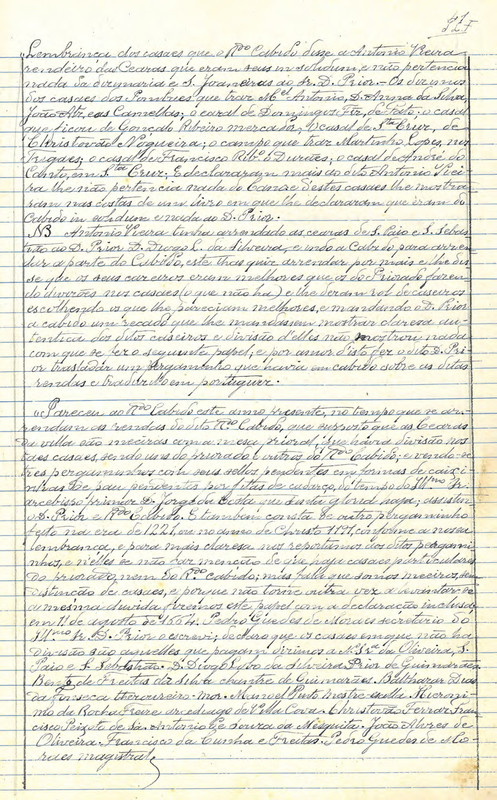 Lembrança dos casaes que o Rdo Cabido disse a Antonio Vieira
rendeiro das Ceáras que eram seus in solidum, e não pertencia
nada da dizimaria e S. Joaneiras ao Sr. D. Prior.- Os dizimos
dos casaes dos Pombaes que traz Mel Antonio, D. Anna da Silva,
João Alz, as Camellas; o casal de Domingos Frz, de Fato, o casal
que ficou de Gonçalo Ribeiro mercador, o casal de Sta Cruz, de
Christovão Nogueira; o campo que traz Martinho Lopes, nos
Trigaes; o casal de Francisco Ribro Durães; o casal de André do
Canto, em Sta Cruz. E declararam mais ao dito Antonio Viei-
ra lhe não pertencia nada do Campo destes casaes lhe mostra-
ram nas costas de um livro em que lhe declararam que eram do
Cabido in solidum e nada ao D. Prior.
NB Antonio Vieira tinha arrendado as ceáras de S. Paio e S. Sebas-
tião ao D. Prior D. Diogo L. da Silveira, e indo a Cabido para arren-
dar a parte do Cabido, este lhas quiz arrendar por mais e lhe dis-
se que os seus caseiros eram melhores que os do Priorado, fazen-
do divisões nos casaes (o que não ha) e lhe deram rol de caseiros
escolhendo os que lhe pareciam melhores, e mandando o D. Prior
a cabido um recado que lhe mandassem mostrar clareza au-
tentica dos ditos caseiros e divisão d'elles não mostrou nada
com que se fez o seguinte papel, e por amor d'isto fez o dito D. Pri-
or trasladar um pergaminho que havia em cabido sobre as ditas
rendas e traduzil-o em portuguez.
"Pareceu ao Rdo Cabido este anno presente, no tempo que se ar-
rendam as rendas do dito Rdo Cabido, que supposto que as Ceáras
da villa são meeiras com a mesa prioral, que havia divisão nos
taes casaes, sendo uns do priorado e outros do Rdo Cabido; e vendo-se
tres pergaminhos com seus sellos pendentes em formas de caixi-
nhas de pau pendentes por fitas de cadarço, do tempo do Illmo Sr.
arcebispo primior D. Jorge da Costa que santa gloria haja; assistin-
o D. Prior e Rdo Cabido. E tambem consta de outro pergaminho
feito na era de 1221, ou no anno de Christo 1171, conforme a nossa
lembrança, e para mais clareza nos reportamos aos ditos pergami-
nhos, e n'elles se não faz menção de que haja casaes particulares
do priorado, nem do Rdo cabido; mas falla que somos meeiros, sem
distincção de casaes, e porque não torne outra vez a levantar-se
a mesma duvida fizemos este papel com a declaração inclusa,
em 11 de agosto de 1664. Pedro Guedes de Moraes secretario do
Illmo Sr. D. Prior o escrevi; declaro que os casaes em que não ha
divisão são aquelles que pagam dizimos a N. Sra da Oliveira, S.
Paio e S. Sebastião. D. Diogo Lobo da Silveira, Prior de Guimarães.
Bento de Freitas da Silva chantre de Guimarães. Balthazar Dias
da Fonseca thesoureiro-mor. Manuel Pinto Mestre escolla. Hieroni-
mo da Rocha Freire arcediago de Villa Cova. Christovão Ferraz. Fran-
cisco Peixoto de San Antonio. Gr. Souza da Mesquita. João Alvres de
Oliveira. Francisco da Cunha e Freitas. Pedro Guedes de Mo-
raes magistral.